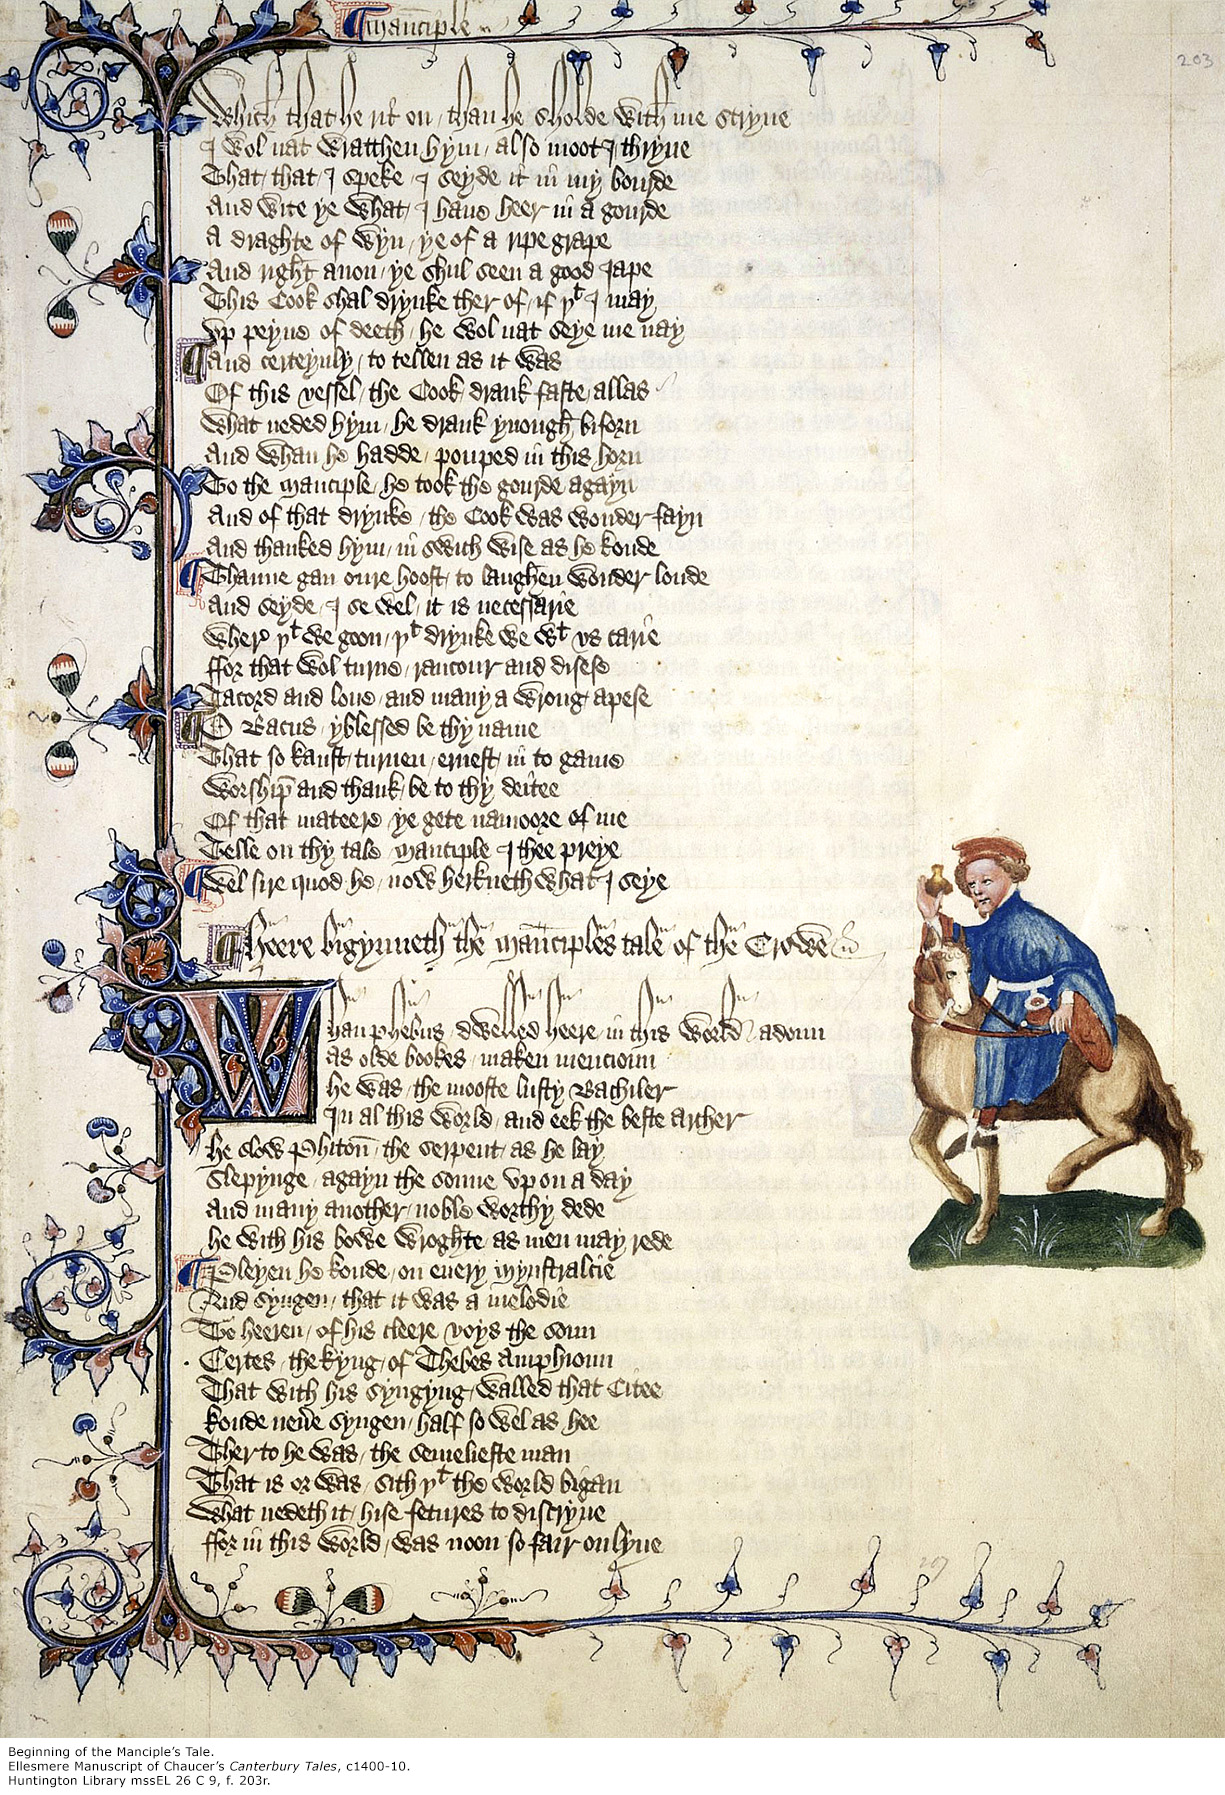 Manciple
203
Which that he rit on / than he sholde with me stryue
I wol nat wratthen hym / also moot I thryue
That / that / I speke / I seyde it in my bourde
And wite ye what / I haue heer in a gourde
A draghte of wyn / ye of a ripe grape
And right anon / ye shul seen a good Iape
This Cook shal drynke ther of / if yt I may
Vp peyne of deeth / he wol nat seye me nay
And certeynly / to tellen as it was
Of this vessel / the Cook drank faste / allas
What neded hym / he drank ynough biforn
And whan he hadde / pouped in this horn
To the Manciple / he took the gourde agayn
And of that drynke / the Cook was wonder fayn
And thanked hym / in swich wise as he koude
Thanne gan oure hoost / to laughen wonder loude
And seyde / I se wel / it is necessarie
Wher yt we goon / yt drynke we wt vs carie
ffor that wol turne / rancour and disese
Tacord and loue / and many a wrong apese
O Bacus / yblessed be thy name
That so kanst / turnen / ernest / in to game
Worship and thank / be to thy deitee
Of that mateere / ye gete namoore of me
Telle on thy tale / Manciple I thee preye
Wel sire quod he / now herkneth what I seye
Heere bigynneth the Manciples tale of the Crowe
Whan Phebus / dwelled heere / in this world adoun
as olde bookes / maken mencioun
he was / the mooste lusty Bachiler
In al this world / and eek the beste Archer
he slow Phiton / the serpent / as he lay
Slepynge / agayn the sonne vp on a day
And many another / noble worthy dede
he with his bowe wroghte / as men may rede
Pleyen he koude / on euery Mynstralcie
And syngen / that it was a melodie
To heeren / of his cleere voys the soun
Certes / the kyng / of Thebes Amphioun
That with his syngyng / walled that Citee
koude neuere syngen / half so wel as hee
Ther to he was / the semelieste man
That is or was / sith yt the world bigan
What nedeth it / hise fetures to discryue
ffor in this world / was noon so fair onlyue
Beginning of the Manciple’s Tale.
Ellesmere Manuscript of Chaucer’s Canterbury Tales, c1400-10.
Huntington Library mssEL 26 C 9, f. 203r.